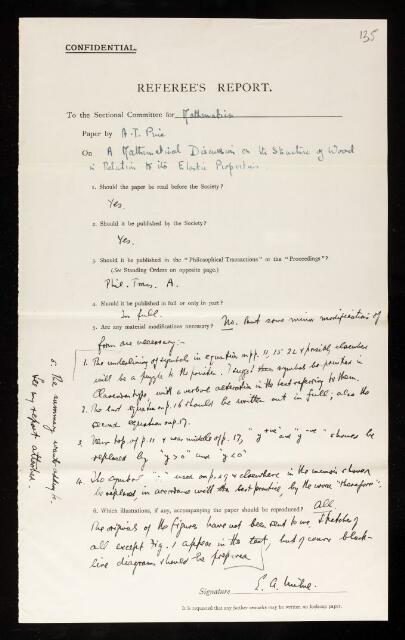 135
CONFIDENTIAL.
REFEREE'S REPORT.
To the Sectional Committee for Mathematics
Paper by A. T. Price
On A Mathematical Discussion on the Structure of Wood
in Relation to its Elastic Properties.
1. Should the paper be read before the Society?
Yes.
2. Should it be published by the Society?
Yes.
3. Should it be published in the "Philosophical Transactions" or the "Proceedings"?
(See Standing Orders on opposite page.)
Phil. Trans. A.
4. Should it be published in full or only in part?
In full.
5. Are any material modifications necessary? No. But some minor modifications of
form are necessary:-
1. The underlining of symbols in equations on pp. 11, 15 22 & possibly elsewhere
will be a puzzle to the printer. I suggest these symbols be printed in
Clarendon type, with a verbal alteration in the text referring to them.
2. The last equation on p. 16 should be written out in full; also the
second equation on p. 17.
3. Near top of p. 11 & near middle of p. 17, "y +ve" and "y -ve" should be
replaced by "y > 0" and "y < 0"
4. The symbol "∴" used on p. 29 & elsewhere in the memoir should
be replaced, in accordance with the best practice, by the word "therefore".
5. The summary wants adding to.
See my report attached.
6. Which illustrations, if any, accompanying the paper should be reproduced? All
The originals of the figures have not been sent to me. Sketches of
all except Fig. 1 appear in the text, but of course black-
line diagrams should be prepared
Signature E. A. Milne.
It is requested that any further remarks may be written on foolscap paper.